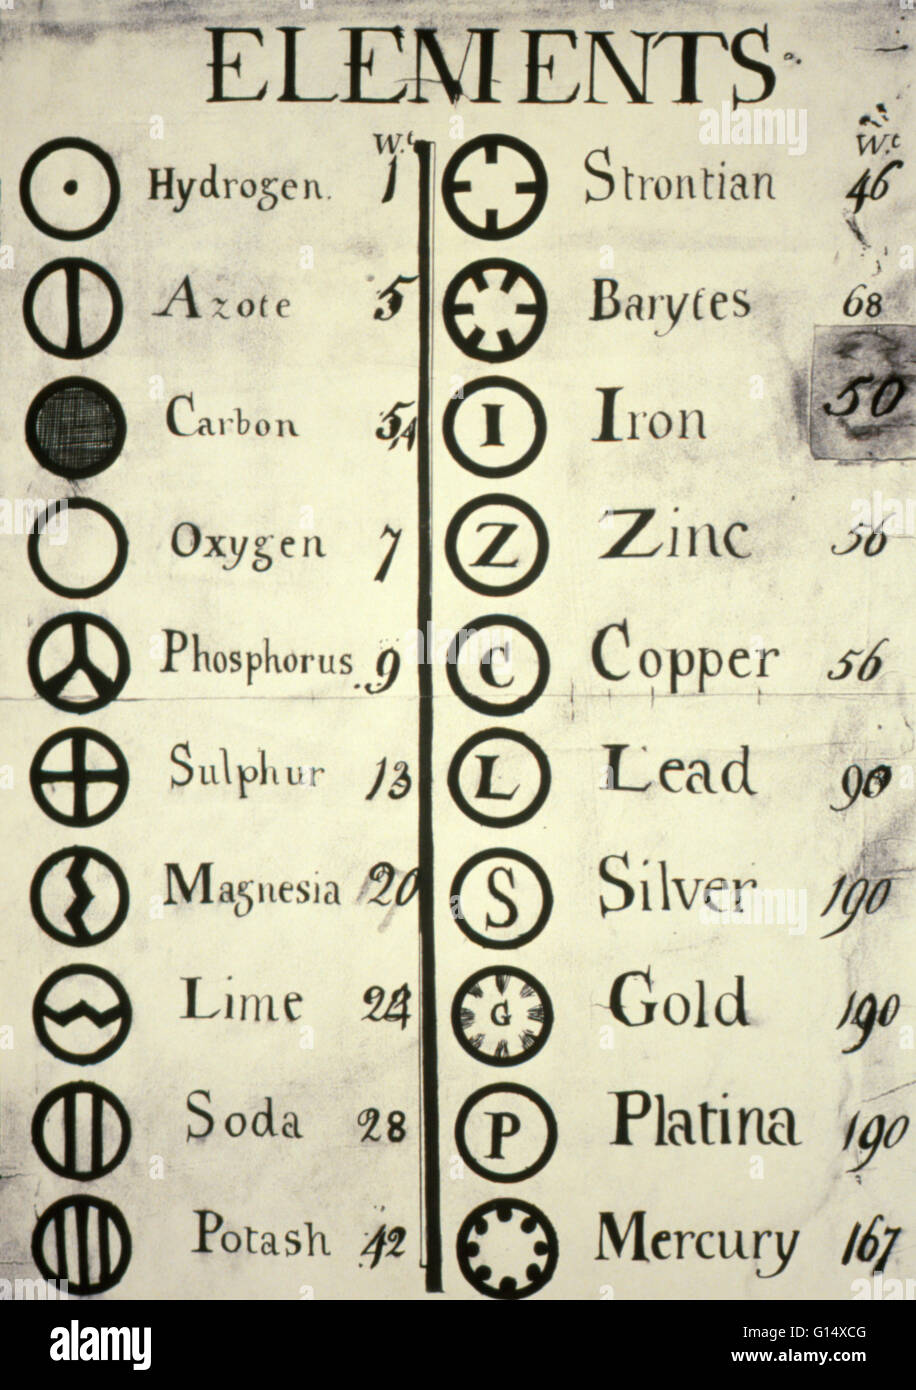 ELEMENTS
W.t
Hydrogen. 1
Azote 5
Carbon 5,4
Oxygen 7
Phosphorus 9
Sulphur 13
Magnesia 20
Lime 24
Soda 28
Potash 42
W.t
Strontian 46
Barytes 68
I Iron 50
Z Zinc 56
C Copper 56
L Lead 90
S Silver 190
G Gold 190
P Platina 190
Mercury 167
alamy
alamy
Image ID: G14XCG
www.alamy.com